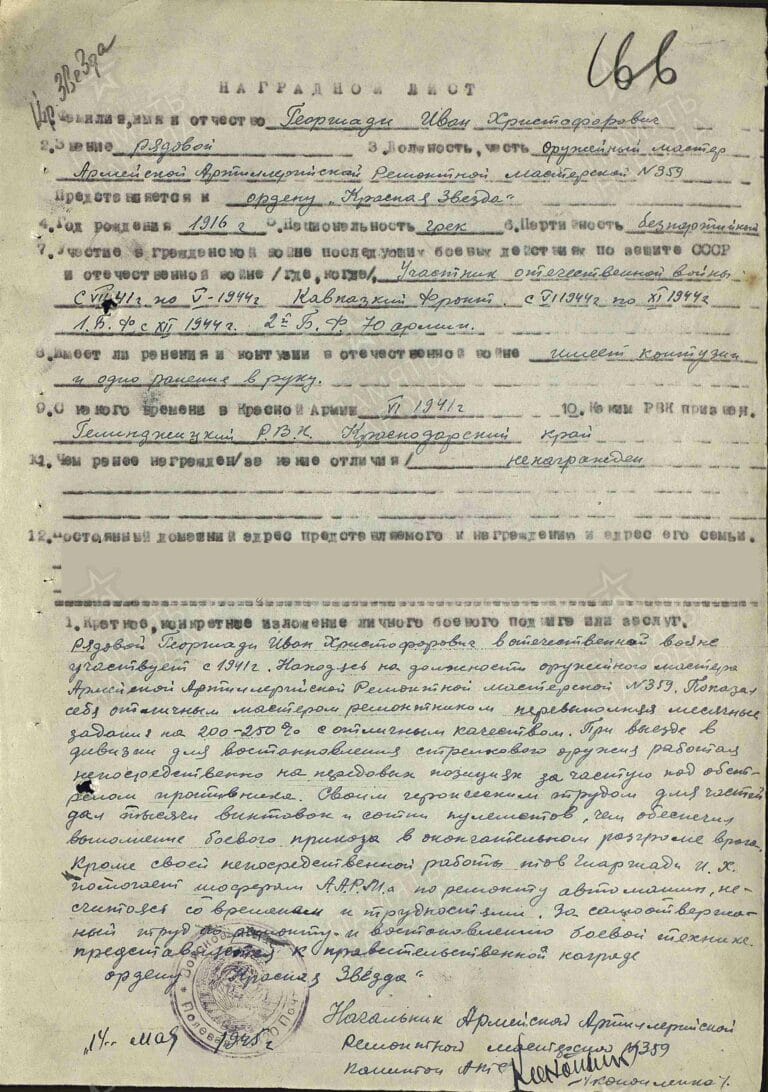 Кр. Звезда
166
НАГРАДНОЙ ЛИСТ
Фамилия, имя и отчество Георгиади Иван Христофорович
2. Звание рядовой 3. Должность, часть оружейный мастер
Армейской Артиллерийской Ремонтной мастерской №359
Представляется к ордену „Красная Звезда"
4. Год рождения 1916 г 5. Национальность грек 6. Партийность безпартийный
7. Участие в гражданской войне последующих боевых действиях по защите СССР
и отечественной войне /где, когда/, Участник отечественной войны
с VII 41г. по V-1944г Кавказкий Фронт. с VI 1944г по XI 1944г
1. Б. Ф с XII 1944г. 2й Б. Ф. 70 армии.
8. Имеет ли ранения и контузии в отечественной войне имеет контузии
и одно ранения в руку.
9. С какого времени в Красной Армии VI 1941г 10. Каким РВК призван.
Гелинджицкий Р.В.К. Краснодарский край
11. Чем ранее награжден/за какие отличия/ ненагражден
12. Постоянный домашний адрес представляемого к награждению и адрес его семьи.
1. Краткое, конкретное изложение личного боевого подвига или заслуг.
Рядовой Георгиади Иван Христофорович в отечественной войне
участвует с 1941г. Находясь на должности оружейного мастера
Армейской Артиллерийской Ремонтной мастерской №359. Показал
себя отличным мастером ремонтником перевыполняя месячные
задания на 200-250% с отличным качеством. При выезде в
дивизии для востановления стрелкового оружия работал
непосредственно на передовых позициях за частую под обст-
релом противника. Своим героическим трудом для частей
дал тысячи винтовок и сотни пулеметов, чем обеспечил
выполнение боевого приказа в окончательном разгроме врага.
Кроме своей непосредственной работы тов Гиаргиади И. Х.
помогает шоферам А.А.Р.М.а по ремонту автомашин, не-
считаясь со временем и трудностями. За самоотвержен-
ный труд по ремонту и востановлению боевой технике
представляется к правительственной награде
ордену „Красная Звезда"
Начальник Армейской Артиллерийской
„14" мая 1945г Ремонтной мастерской №359
капитан
/Кононенко/